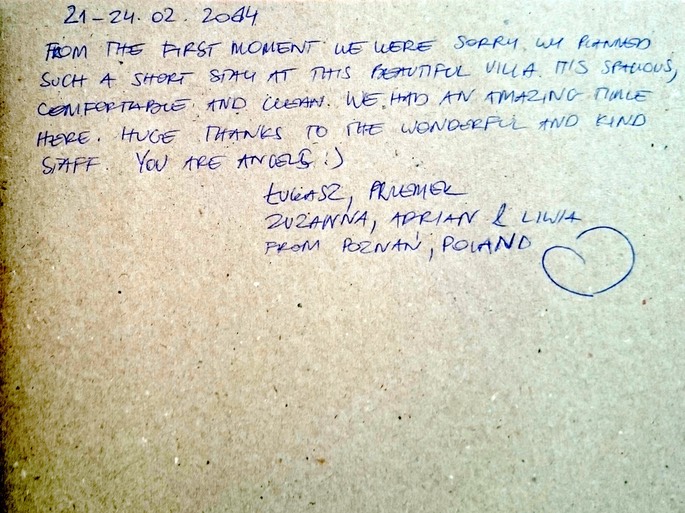 21-24.02.2014
FROM THE FIRST MOMENT WE WERE SORRY WE PLANNED
SUCH A SHORT STAY AT THIS BEAUTIFUL VILLA. IT'S SPACIOUS,
COMFORTABLE AND CLEAN. WE HAD AN AMAZING TIME
HERE. HUGE THANKS TO THE WONDERFUL AND KIND
STAFF. YOU ARE ANGELS :)
ŁUKASZ, PRZEMEK
ZUZANNA, ADRIAN & LIWIA
FROM POZNAŃ, POLAND